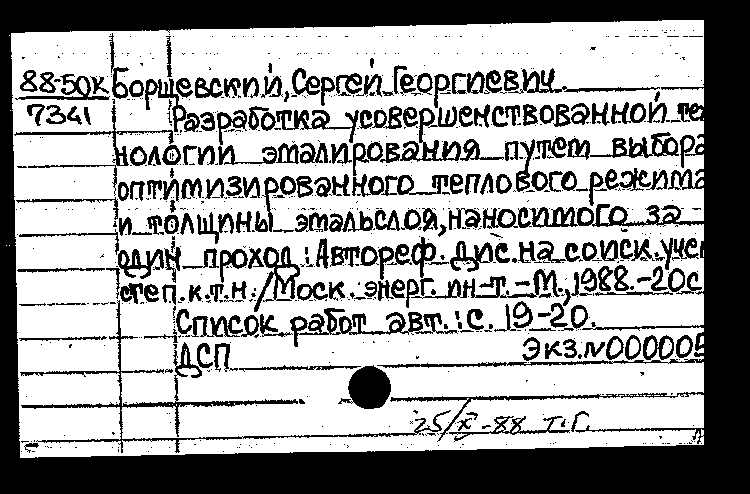 88-50к Борщевский, Сергей Георгиевич.
7341 Разработка усовершенствованной тех
нологии эмалирования путем выбора
оптимизированного теплового режима
и толщины эмальслоя, наносимого за
один проход : Автореф. дис. на соиск. учен
степ. к.т.н. / Моск. энерг. ин-т. - М., 1988. - 20с
Список работ авт.: с. 19-20.
ДСП Экз.N000005
25/X-88 Т.Г.